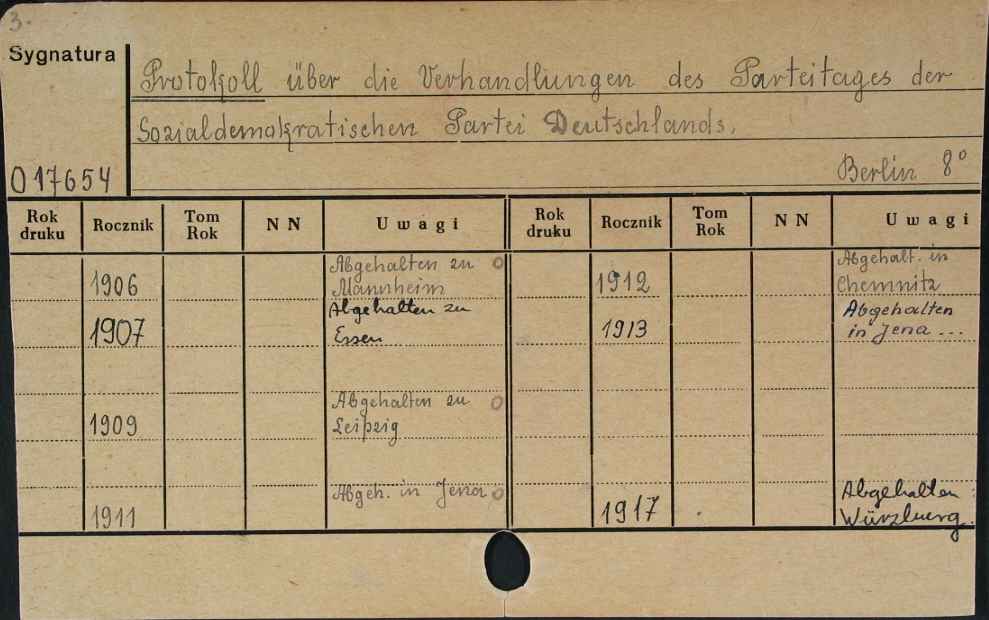 3.
Sygnatura
Protokoll über die Verhandlungen des Parteitages der
Sozialdemokratischen Partei Deutschlands.
Berlin 8°
017654
Rok druku Rocznik Tom Rok NN Uwagi Rok druku Rocznik Tom Rok NN Uwagi
1906 Abgehalten zu Mannheim
1907 Abgehalten zu Essen
1909 Abgehalten zu Leipzig
1911 Abgeh. in Jena
1912 Abgehalt. in Chemnitz
1913 Abgehalten in Jena ...
1917 Abgehalten : Würzburg.